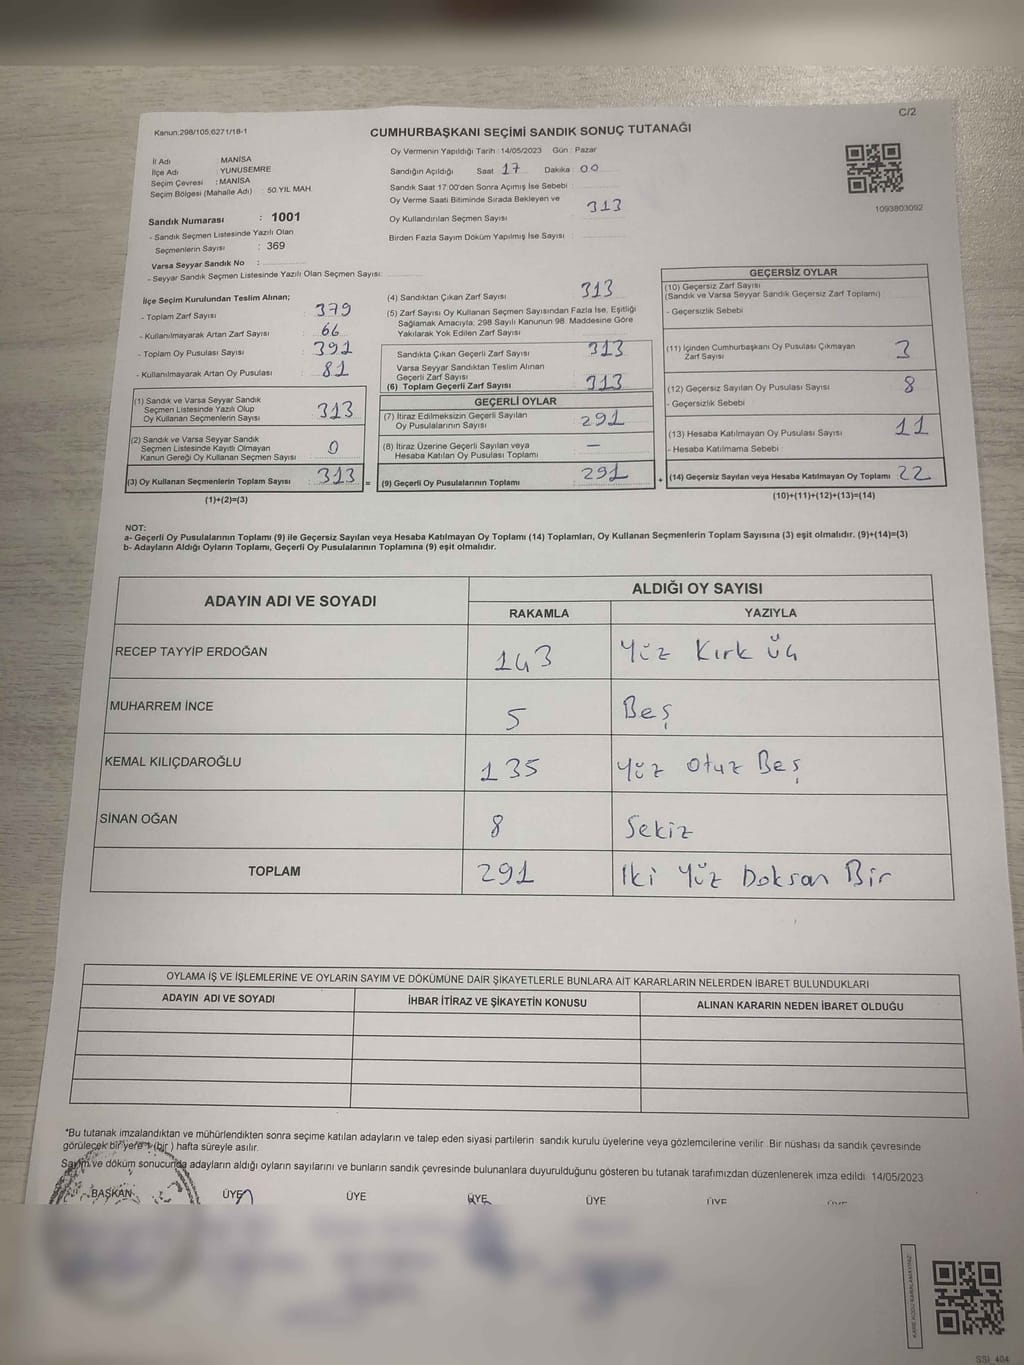 C/2
Kanun:298/105,6271/18-1
CUMHURBAŞKANI SEÇİMİ SANDIK SONUÇ TUTANAĞI
İl Adı MANİSA
İlçe Adı : YUNUSEMRE
Seçim Çevresi : MANİSA
Seçim Bölgesi (Mahalle Adı) : 50.YIL MAH.
Sandık Numarası : 1001
- Sandık Seçmen Listesinde Yazılı Olan
Seçmenlerin Sayısı : 369
Varsa Seyyar Sandık No :
- Seyyar Sandık Seçmen Listesinde Yazılı Olan Seçmen Sayısı:
Oy Vermenin Yapıldığı Tarih : 14/05/2023 Gün : Pazar
Sandığın Açıldığı Saat 17 Dakika 00
Sandık Saat 17:00'den Sonra Açımış İse Sebebi :
Oy Verme Saati Bitiminde Sırada Bekleyen ve
Oy Kullandırılan Seçmen Sayısı : 313
Birden Fazla Sayım Döküm Yapılmış İse Sayısı :
1093803092
İlçe Seçim Kurulundan Teslim Alınan;
- Toplam Zarf Sayısı : 379
- Kullanılmayarak Artan Zarf Sayısı : 66
- Toplam Oy Pusulası Sayısı : 391
- Kullanılmayarak Artan Oy Pusulası : 81
(1) Sandık ve Varsa Seyyar Sandık
Seçmen Listesinde Yazılı Olup
Oy Kullanan Seçmenlerin Sayısı : 313
(2) Sandık ve Varsa Seyyar Sandık
Seçmen Listesinde Kayıtlı Olmayan
Kanun Gereği Oy Kullanan Seçmen Sayısı : 0
(3) Oy Kullanan Seçmenlerin Toplam Sayısı : 313
(1)+(2)=(3)
(4) Sandıktan Çıkan Zarf Sayısı 313
(5) Zarf Sayısı Oy Kullanan Seçmen Sayısından Fazla İse, Eşitliği
Sağlamak Amacıyla; 298 Sayılı Kanunun 98. Maddesine Göre
Yakılarak Yok Edilen Zarf Sayısı
Sandıkta Çıkan Geçerli Zarf Sayısı : 313
Varsa Seyyar Sandıktan Teslim Alınan
Geçerli Zarf Sayısı
(6) Toplam Geçerli Zarf Sayısı : 313
GEÇERLİ OYLAR
(7) İtiraz Edilmeksizin Geçerli Sayılan
Oy Pusulalarının Sayısı : 291
(8) İtiraz Üzerine Geçerli Sayılan veya
Hesaba Katılan Oy Pusulası Toplamı : —
= (9) Geçerli Oy Pusulalarının Toplamı : 291
GEÇERSİZ OYLAR
(10) Geçersiz Zarf Sayısı
(Sandık ve Varsa Seyyar Sandık Geçersiz Zarf Toplamı)
- Geçersizlik Sebebi
(11) İçinden Cumhurbaşkanı Oy Pusulası Çıkmayan
Zarf Sayısı 3
(12) Geçersiz Sayılan Oy Pusulası Sayısı 8
- Geçersizlik Sebebi
(13) Hesaba Katılmayan Oy Pusulası Sayısı 11
- Hesaba Katılmama Sebebi
+ (14) Geçersiz Sayılan veya Hesaba Katılmayan Oy Toplamı 22
(10)+(11)+(12)+(13)=(14)
NOT:
a- Geçerli Oy Pusulalarının Toplamı (9) ile Geçersiz Sayılan veya Hesaba Katılmayan Oy Toplamı (14) Toplamları, Oy Kullanan Seçmenlerin Toplam Sayısına (3) eşit olmalıdır. (9)+(14)=(3)
b- Adayların Aldığı Oyların Toplamı, Geçerli Oy Pusulalarının Toplamına (9) eşit olmalıdır.
ADAYIN ADI VE SOYADI ALDIĞI OY SAYISI
RAKAMLA YAZIYLA
RECEP TAYYİP ERDOĞAN 143 Yüz Kırk Üç
MUHARREM İNCE 5 Beş
KEMAL KILIÇDAROĞLU 135 Yüz Otuz Beş
SİNAN OĞAN 8 Sekiz
TOPLAM 291 İki Yüz Doksan Bir
OYLAMA İŞ VE İŞLEMLERİNE VE OYLARIN SAYIM VE DÖKÜMÜNE DAİR ŞİKAYETLERLE BUNLARA AİT KARARLARIN NELERDEN İBARET BULUNDUKLARI
ADAYIN ADI VE SOYADI İHBAR İTİRAZ VE ŞİKAYETİN KONUSU ALINAN KARARIN NEDEN İBARET OLDUĞU
*Bu tutanak imzalandıktan ve mühürlendikten sonra seçime katılan adayların ve talep eden siyasi partilerin sandık kurulu üyelerine veya gözlemcilerine verilir. Bir nüshası da sandık çevresinde
görülecek bir yere 1 (bir ) hafta süreyle asılır.
Sayım ve döküm sonucunda adayların aldığı oyların sayılarını ve bunların sandık çevresinde bulunanlara duyurulduğunu gösteren bu tutanak tarafımızdan düzenlenerek imza edildi 14/05/2023
BAŞKAN ÜYE ÜYE ÜYE ÜYE ÜYE
SSİ 404